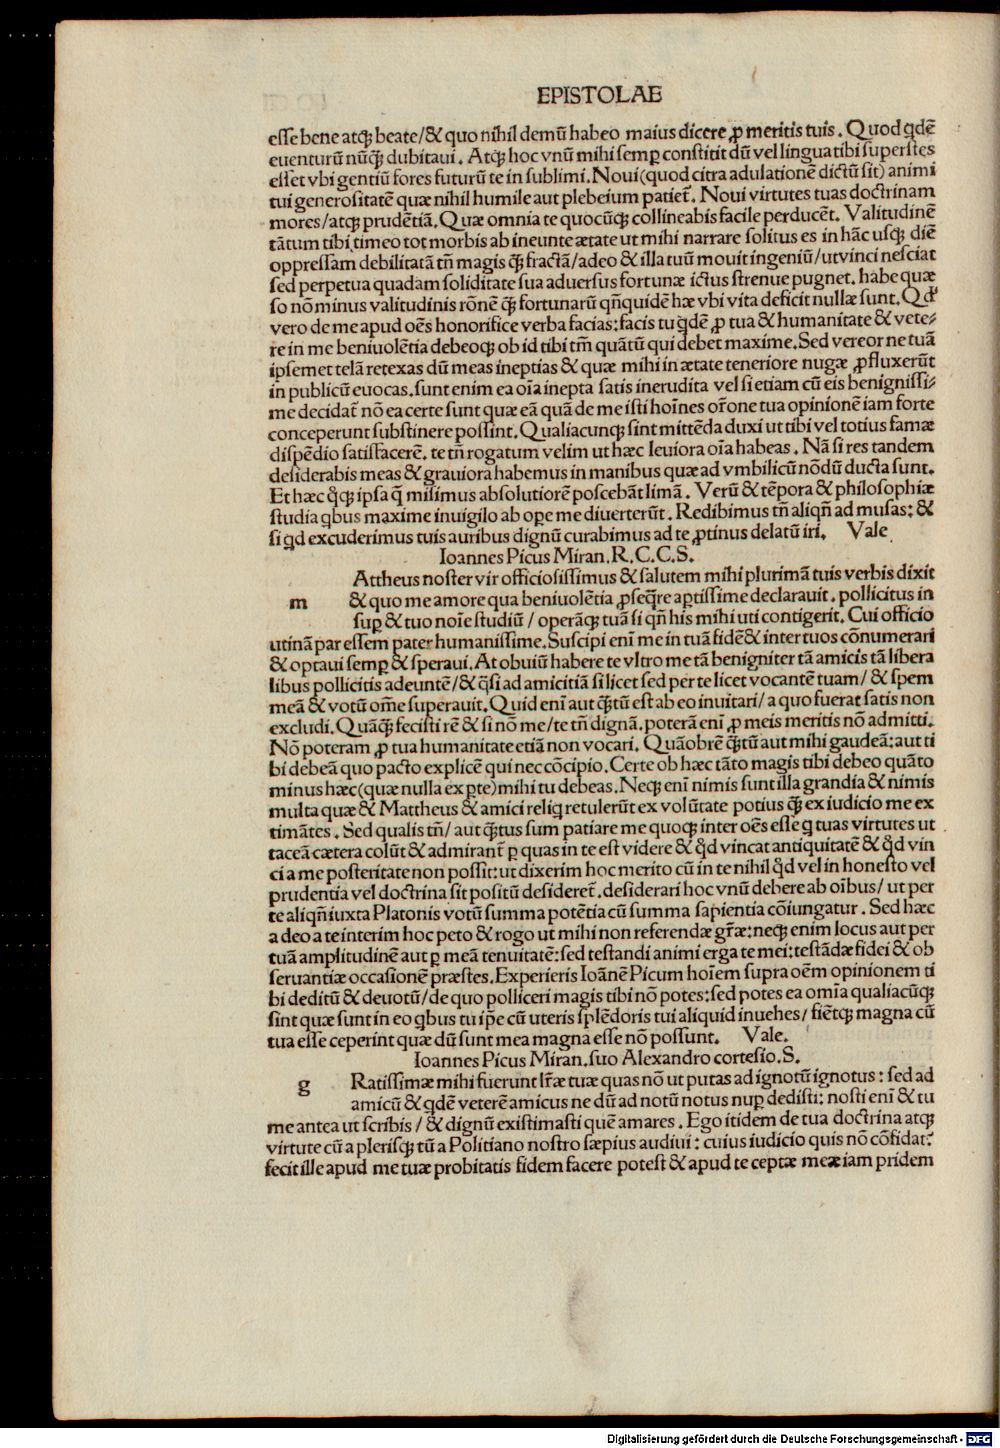 EPISTOLAE
esse bene atq; beate/& quo nihil demũ habeo maius dicere ꝓ meritis tuis. Quod qdẽ
euenturũ nũq̃ dubitaui. Atq; hoc vnũ mihi semꝑ constitit dũ vel lingua tibi superstes
esset vbi gentiũ fores futurũ te in sublimi. Noui(quod citra adulationẽ dictũ sit) animi
tui generositatẽ quæ nihil humile aut plebeium patiet̃. Noui virtutes tuas doctrinam
mores/atq; prudẽtiã. Quæ omnia te quocũq; collineabis facile perducẽt. Valitudinẽ
tãtum tibi timeo tot morbis ab ineunte ætate ut mihi narrare solitus es in hãc usq; diẽ
oppressam debilitatã tñ magis q̃ fractã/adeo & illa tuũ mouit ingeniũ/ut vinci nesciat
sed perpetua quadam soliditate sua aduersus fortunæ ictus strenue pugnet. habe quæ
so nõ minus valitudinis rõnẽ q̃ fortunarũ qñquidẽ hæ vbi vita deficit nullæ sunt. Qđ
vero de me apud oẽs honorifice verba facias: facis tu qdẽ ꝓ tua & humanitate & vete⸗
re in me beniuolẽtia debeoq; ob id tibi tm̃ quãtũ qui debet maxime. Sed vereor ne tuã
ipsemet telã retexas dũ meas ineptias & quæ mihi in ætate teneriore nugæ ꝓfluxerũt
in publicũ euocas. sunt enim ea oĩa inepta satis inerudita vel si etiam cũ eis benignissi⸗
me decidat̃ nõ ea certe sunt quæ eã quã de me isti hoĩnes or̃one tua opinionẽ iam forte
conceperunt substinere possint. Qualiacunq; sint mittẽda duxi ut tibi vel totius famæ
dispẽdio satisfacerẽ. te tñ rogatum velim ut hæc leuiora oĩa habeas. Nã si res tandem
desiderabis meas & grauiora habemus in manibus quæ ad vmbilicũ nõdũ ducta sunt.
Et hæc q̊q; ipsa q̃ misimus absolutiorẽ poscebãt limã. Verũ & tẽpora & philosophiæ
studia qbus maxime inuigilo ab oꝑe me diuerterũt. Redibimus tñ aliqñ ad musas: &
si qd excuderimus tuis auribus dignũ curabimus ad te ꝓtinus delatũ iri. Vale
Ioannes Picus Miran. R. C. C. S.
m
Attheus noster vir officiosissimus & salutem mihi plurimã tuis verbis dixit
& quo me amore qua beniuolẽtia ꝓseq̃re aptissime declarauit. pollicitus in
suꝑ & tuo noĩe studiũ / operãq; tuã si qñ his mihi uti contigerit. Cui officio
utinã par essem pater humanissime. Suscipi enĩ me in tuã fidẽ & inter tuos cõnumerari
& optaui semꝑ & speraui. At obuiũ habere te vltro me tã benigniter tã amicis tã libera
libus pollicitis adeuntẽ/& q̃si ad amicitiã si licet sed per te licet vocantẽ tuam/ & spem
meã & votũ om̃e superauit. Quid enĩ aut q̃tũ est ab eo inuitari/ a quo fuerat satis non
excludi. Quãq̃ fecisti rẽ & si nõ me/te tñ dignã. poterã enĩ ꝓ meis meritis nõ admitti.
Nõ poteram ꝓ tua humanitate etiã non vocari. Quãobrẽ q̃tũ aut mihi gaudeã: aut ti
bi debeã quo pacto explicẽ qui nec cõcipio. Certe ob hæc tãto magis tibi debeo quãto
minus hæc(quæ nulla ex ꝑte)mihi tu debeas. Neq; enĩ nimis sunt illa grandia & nimis
multa quæ & Mattheus & amici reliq retulerũt ex volũtate potius q̃ ex iudicio me ex
timãtes. Sed qualis tñ/ aut q̃tus sum patiare me quoq; inter oẽs esse q tuas virtutes ut
taceã cætera colũt & admirant̃ ꝑ quas in te est videre & q̊d vincat antiquitatẽ & q̊d vin
ci a me posteritate non possit: ut dixerim hoc merito cũ in te nihil q̊d vel in honesto vel
prudentia vel doctrina sit positũ desideret̃. desiderari hoc vnũ debere ab oĩbus/ ut per
te aliqñ iuxta Platonis votũ summa potẽtia cũ summa sapientia cõiungatur. Sed hæc
a deo a te interim hoc peto & rogo ut mihi non referendæ gr̃æ: neq; enim locus aut per
tuã amplitudinẽ aut ꝑ meã tenuitatẽ: sed testandi animi erga te mei: testãdæ fidei & ob
seruantiæ occasionẽ præstes. Experieris Ioãnẽ Picum hoĩem supra oẽm opinionem ti
bi deditũ & deuotũ/ de quo polliceri magis tibi nõ potes: sed potes ea omĩa qualiacũq;
sint quæ sunt in eo qbus tu ip̃e cũ uteris splẽdoris tui aliquid inuehes/ fiẽtq; magna cũ
tua esse ceperint quæ dũ sunt mea magna esse nõ possunt. Vale.
Ioannes Picus Miran. suo Alexandro cortesio. S.
g
Ratissimæ mihi fuerunt lr̃æ tuæ quas nõ ut putas ad ignotũ ignotus: sed ad
amicũ & qdẽ veterẽ amicus ne dũ ad notũ notus nuꝑ dedisti: nosti enĩ & tu
me antea ut scribis / & dignũ existimasti quẽ amares. Ego itidem de tua doctrina atq;
virtute cũ a plerisq; tũ a Politiano nostro sæpius audiui: cuius iudicio quis nõ cõfidat?
fecit ille apud me tuæ probitatis fidem facere potest & apud te ceptæ meæ iam pridem
Digitalisierung gefördert durch die Deutsche Forschungsgemeinschaft - DFG